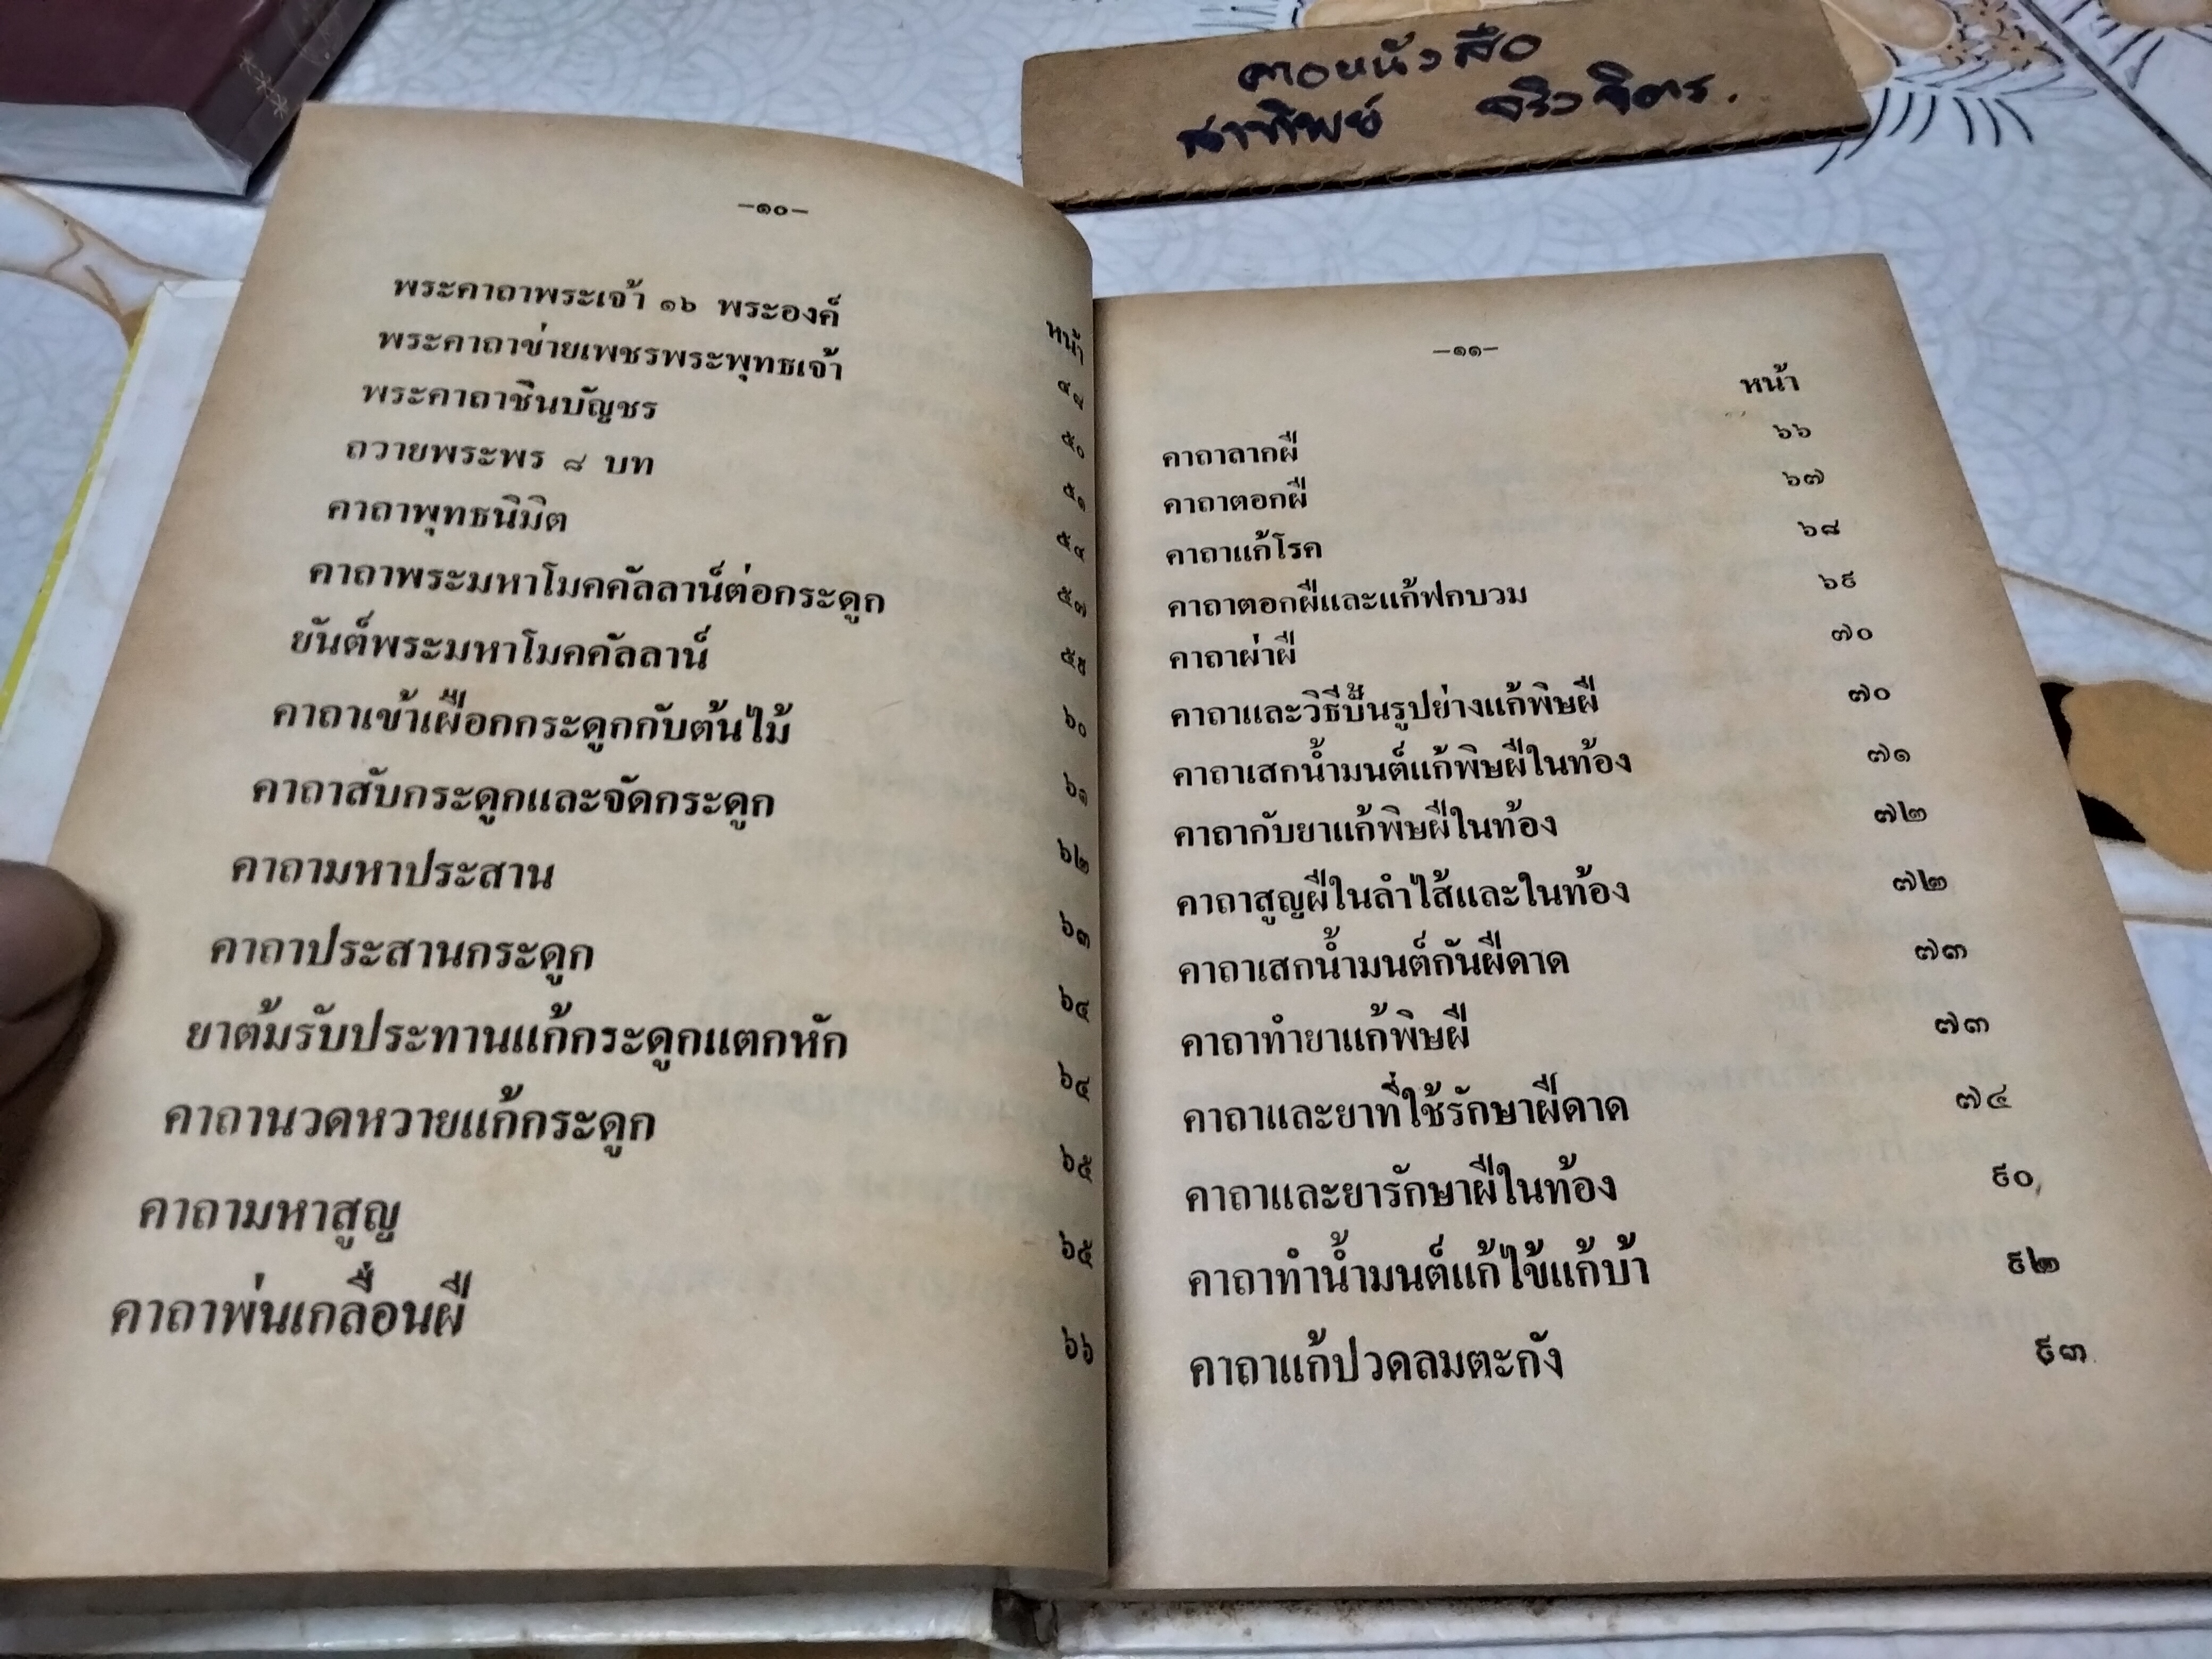 ศาอหนังสือ
สาทิพย์ จริงจิตร.
–๑๐–
หน้า
พระคาถาพระเจ้า ๑๖ พระองค์ ๔๘
พระคาถาข่ายเพชรพระพุทธเจ้า ๕๐
พระคาถาชินบัญชร ๕๑
ถวายพระพร ๘ บท ๕๔
คาถาพุทธนิมิต ๕๗
คาถาพระมหาโมคคัลลาน์ต่อกระดูก ๕๘
ยันต์พระมหาโมคคัลลาน์ ๖๐
คาถาเข้าเผือกกระดูกกับต้นไม้ ๖๑
คาถาสับกระดูกและจัดกระดูก ๖๒
คาถามหาประสาน ๖๓
คาถาประสานกระดูก ๖๔
ยาต้มรับประทานแก้กระดูกแตกหัก ๖๔
คาถานวดหวายแก้กระดูก ๖๕
คาถามหาสูญ ๖๕
คาถาพ่นเกลื่อนฝี ๖๖
–๑๑–
หน้า
คาถาลากฝี ๖๖
คาถาตอกฝี ๖๗
คาถาแก้โรค ๖๘
คาถาตอกฝีและแก้ฟกบวม ๖๙
คาถาผ่าฝี ๗๐
คาถาและวิธีปั้นรูปย่างแก้พิษฝี ๗๐
คาถาเสกน้ำมนต์แก้พิษฝีในท้อง ๗๑
คาถากับยาแก้พิษฝีในท้อง ๗๒
คาถาสูญฝีในลำไส้และในท้อง ๗๒
คาถาเสกน้ำมนต์กันฝีดาด ๗๓
คาถาทำยาแก้พิษฝี ๗๓
คาถาและยาที่ใช้รักษาฝีดาด ๗๔
คาถาและยารักษาฝีในท้อง ๙๐
คาถาทำน้ำมนต์แก้ไข้แก้บ้า ๙๒
คาถาแก้ปวดลมตะกัง ๙๓